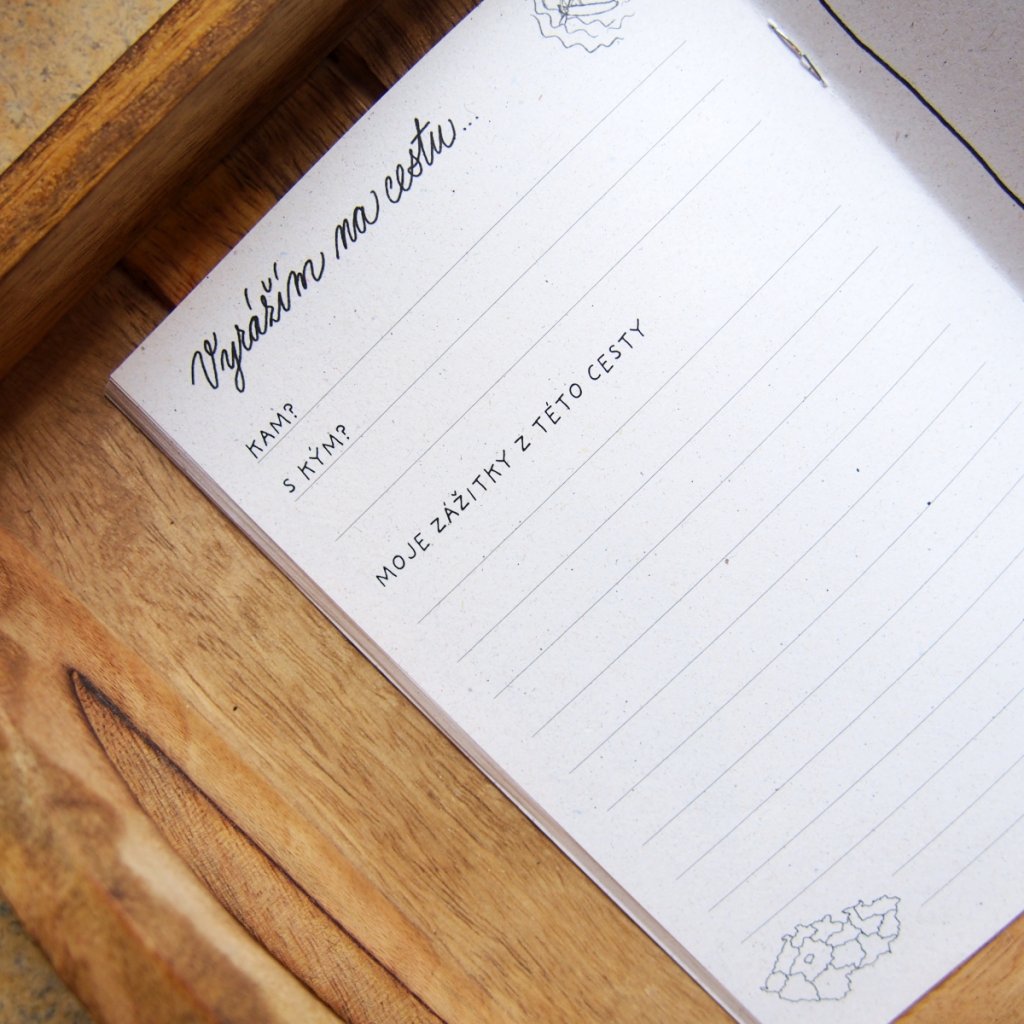 Vyrážím na cestu...
KAM?
S KÝM?
MOJE ZÁŽITKY Z TÉTO CESTY